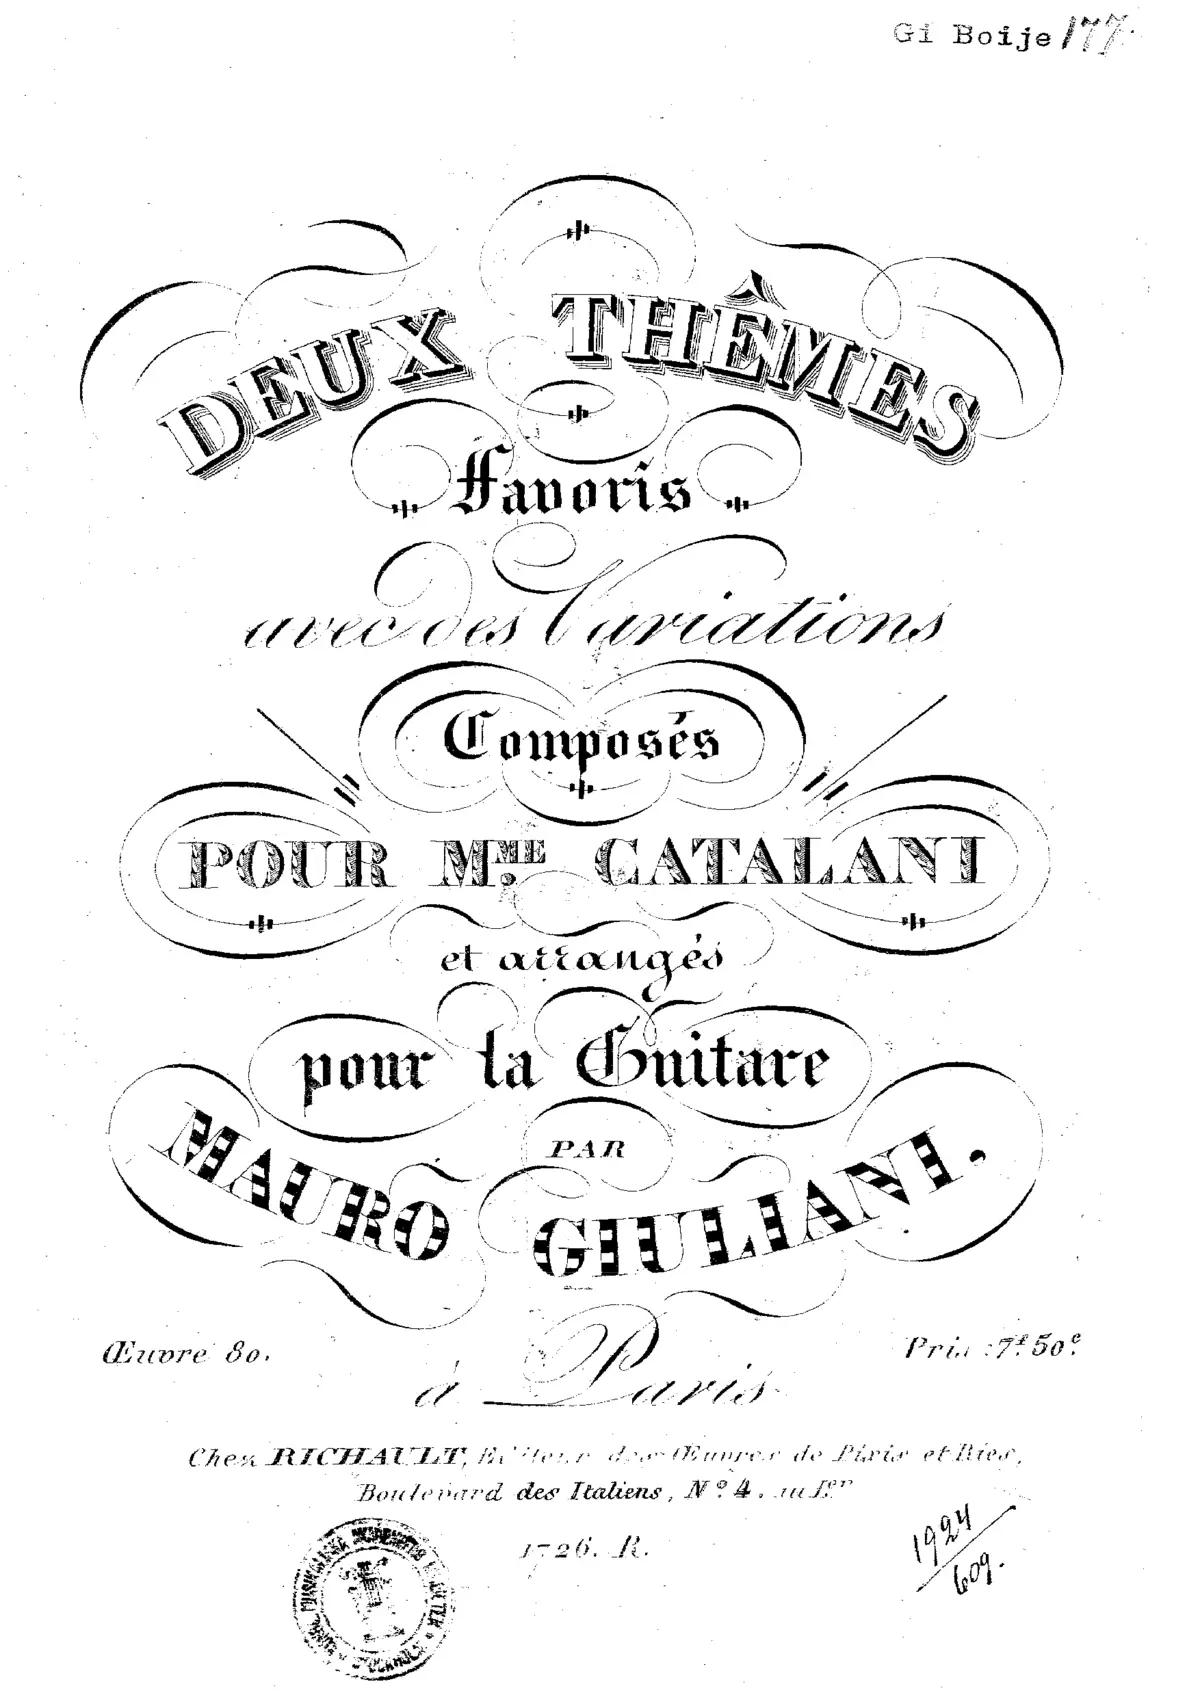 Gi Boije 177.
DEUX THÊMES
Favoris
avec des Variations
Composés
POUR M.ME CATALANI
et arrangés
pour la Guitare
PAR
MAURO GIULIANI.
Œuvre 80. Prix : 7f. 50c.
à Paris
Chez RICHAULT, Editeur des Œuvres de Pixis et Ries,
Boulevard des Italiens, N.º 4. au 1er
1726. R.
1924
609.